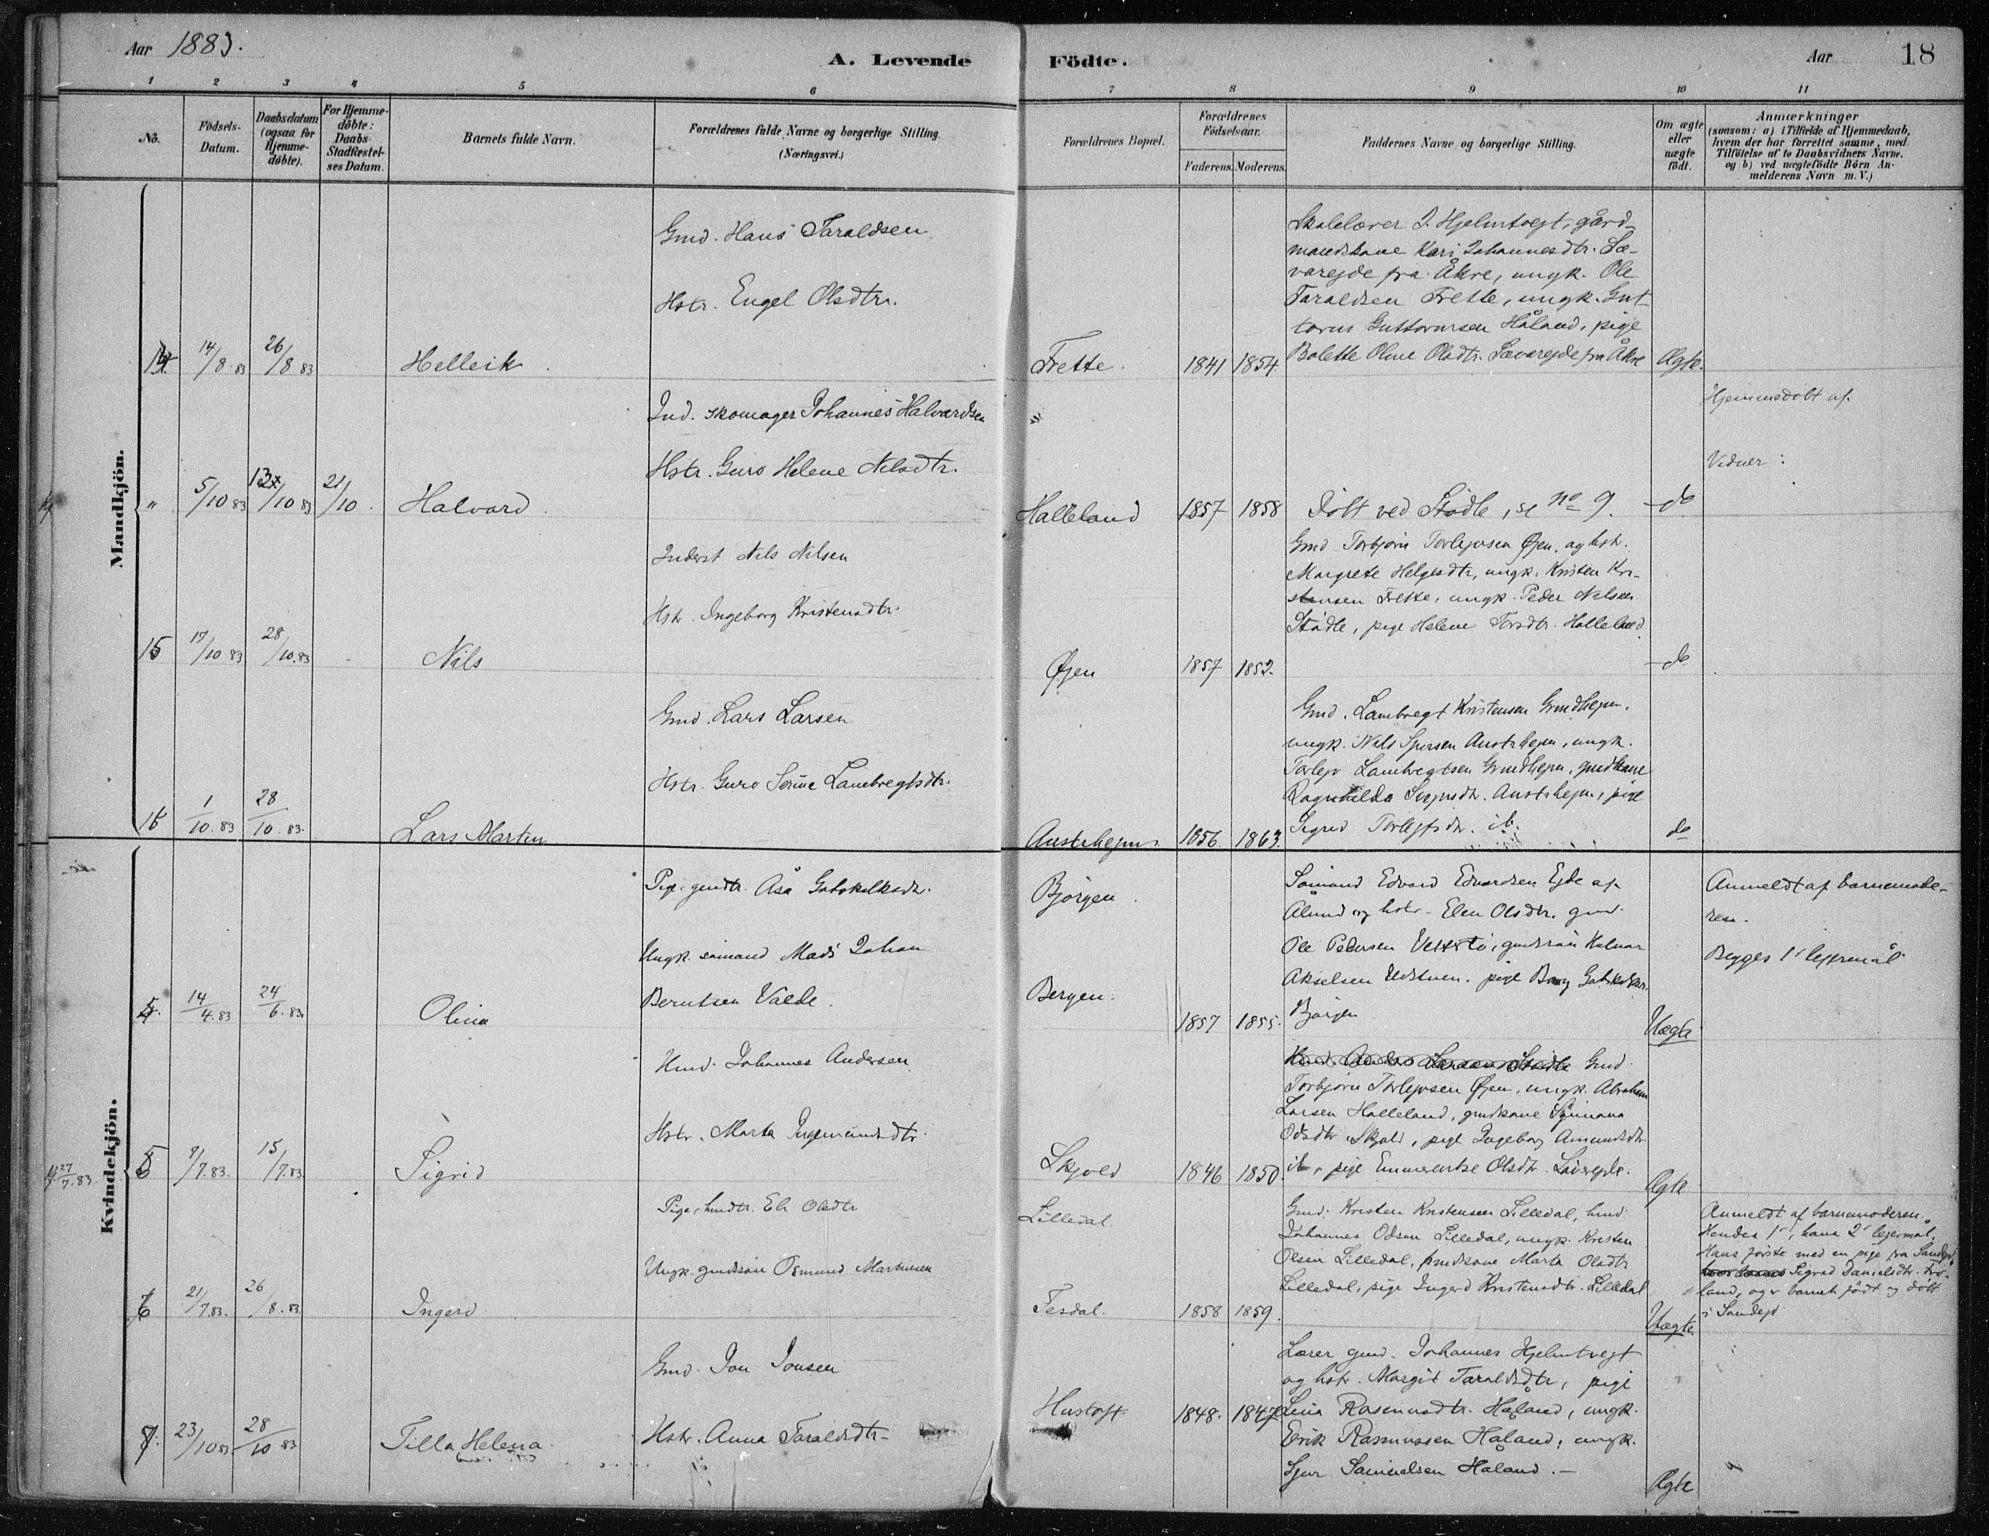 Aar 1883.
A. Levende Födte.
Aar 18
1 2 3 4 5 6 7 8 9 10 11
No.
Födsels-Datum.
Daabsdatum (ogsaa for Hjemme-döbte).
For Hjemme-döbte: Daabs-Stadfæstel-ses Datum.
Barnets fulde Navn.
Forældrenes fulde Navne og borgerlige Stilling. (Næringsvei.)
Forældrenes Bopæl.
Forældrenes Födselsaar.
Faderens. Moderens.
Faddernes Navne og borgerlige Stilling.
Om ægte eller uægte födt.
Anmærkninger
(saasom: a) i Tilfælde af Hjemmedaab,
hvem der har forrettet samme, med
Tilföielse af to Daabsvidners Navne,
og b) ved uægtefödte Börn An-
melderens Navn m. V.)
Mandkjön.
14 14/8 83 26/8 83 Helleik
Gmd. Hans Taraldsen
Hstr. Engel Olsdtr.
Frette. 1841 1854
Skolelærer J. Hjelmtvegt, gård-
mandskone Kari Johannesdtr. Sæ-
varejde fra Åkre, ungk. Ole
Taraldsen Frette, ungk. Gut-
torm Guttormsen Håland, pige
Bolette Oline Olsdtr. Sævarejde fra Åkre
Ægte.
" 5/10 83 13/10 83 21/10. Halvard
Ind. skomager Johannes Halvardsen
Hstr. Guro Helene Nilsdtr.
Halleland 1857 1858
Döbt ved Stödle, se No 9.
do
Hjemmedöbt af
Vidner:
15 17/10 83 28/10.83 Nils
Inderst Nils Nilsen
Hstr. Ingeborg Kristensdtr.
Öjen 1857 1852.
Gmd Torbjörn Torlejvsen Öjen, og hst.
Margrete Helgesdtr, ungk. Kristen Kri-
stensen Frette, ungk. Peder Nilsen
Stödle, pige Helene Torsdtr. Halleland.
do
16 1/10.83 28/10.83. Lars Martin
Gmd. Lars Larsen
Hstr. Guro Serine Lambregtsdtr.
Austrhejm. 1856. 1863.
Gmd. Lambregt Kristensen Grindhejm,
ungk. Nils Austrhejm, ungk.
Torlejv Lambregtsen Grindhejm, gmdkone
Ragnhilda Austrhejm, pige
Sigrid ib.
do
Kvindekjön.
14/4.83 24/6.83. Olina
Pige, gmdtr. Åsa Gotskalksdtr.
Ungk. sömand Mads Johan
Berntsen Valde.
Bjørgen.
Bergen.
1857 1855.
Sömand Edvard Edvardsen Ejde af
Ølund og hstr. Elen Olsdtr. gmd.
Ole Pedersen gmdssön
Akselsen pige
Bjørgen
Uægte
Anmeldt af barnemode-
ren.
Begges 1' lejermål
5 9/7.83. 15/7.83. Sigrid
Hmd. Johannes Andersen
Hstr. Marta Ingemundsdtr.
Skjold 1846 1850.
Gmd.
Torbjörn Torlejvsen Öjen, ungk. Abraham
Larsen Halleland, gmdkone
Skjold, pige Ingeborg Amundsdtr.
ib, pige Olsdtr.
Ægte
27/7.83.
6 21/7.83. 26/8.83. Ingerd
Pige, hmdtr. Eli Olsdtr
Ungk. gmdssön Osmund Martinsen
Lilledal.
Tesdal. 1858 1859.
Gmd. Kristen Kristensen Lilledal, hmd
Johannes Odsen Lilledal, ungk. Kristen
Olsen Lilledal, gmdkone Marta Olsdtr
Lilledal, pige Ingerd Kristensdtr. Lilledal
Uægte.
Anmeldt af barnemoderen.
Hendes 1', hans 2' lejermål.
Hans förste med en pige fra Sandejd
Sigrid Danielsdtr. Frö-
land, og er barnet födt og döbt
i Sandejd
7. 23/10 83 28/10 83 Tilla Helena
Gmd. Jon Jonsen
Hstr. Anna Taraldsdtr.
Hustoft 1848. 1847
Lærer gmd. Johannes Hjelmtvegt
og hstr. Margit Taraldsdtr, pige
Lina Rasmusdtr. Håland, ungk.
Erik Rasmussen Håland, ungk.
Sjur Samuelsen Håland.
Ægte